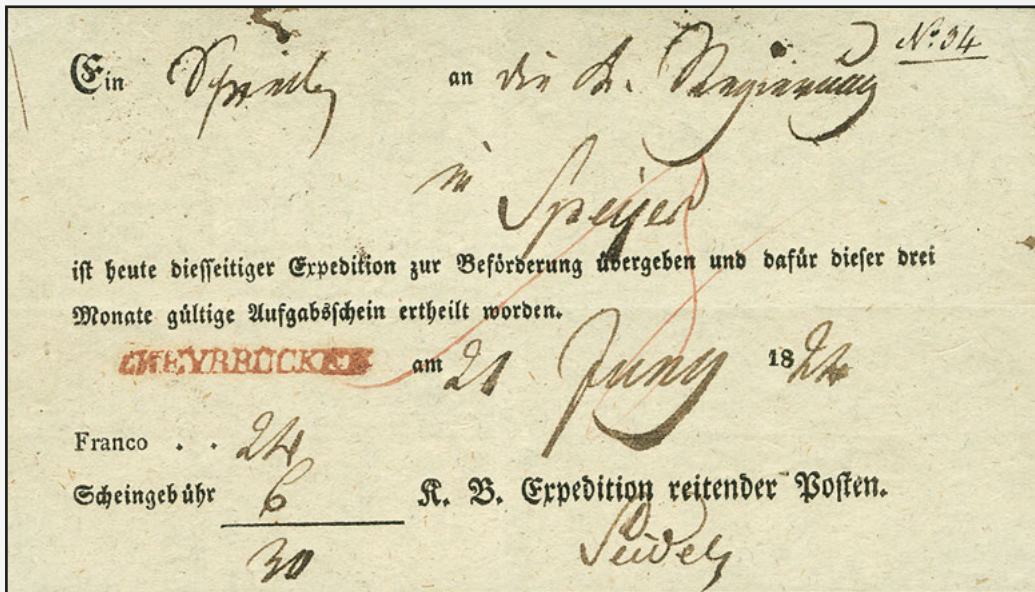 Nº. 34
Ein Schreiben an die K. Regierung
in
Speyer
ist heute diesseitiger Expedition zur Beförderung übergeben und dafür dieser drei
Monate gültige Aufgabsschein ertheilt worden.
ZWEYBRÜCKEN am 21 Juny 1824
Franco . . 24
Scheingebühr 6
K. B. Expedition reitender Posten.
30